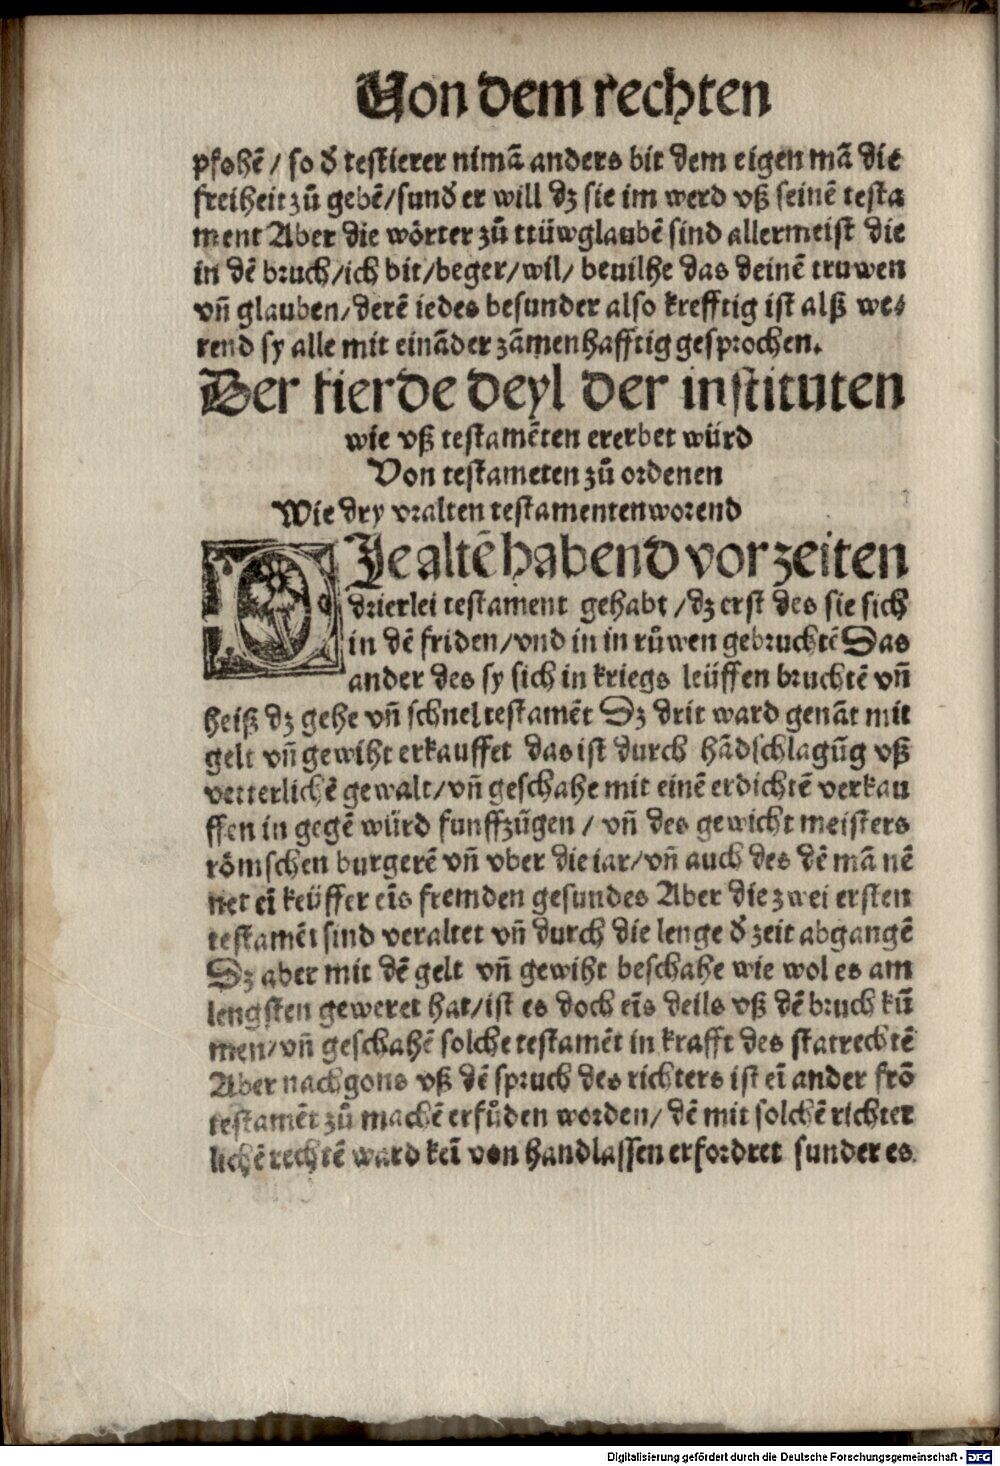 Von dem rechten
pfohẽ / so d̄ testierer nimã anders bit dem eigen mã die
freiheit zů gebẽ/sund̄ er will dz sie im werd vß seinẽ testa
ment Aber die wörter zů ttüwglaubẽ sind allermeist die
in dẽ bruch/ich bit/beger/wil/ beuilhe das deinẽ truwen
vñ glauben/derẽ iedes besunder also krefftig ist alß we⸗
rend sy alle mit einãder zãmenhafftig gesprochen.
Der fierde deyl der instituten
wie vß testamẽten ererbet würd
Von testameten zů ordenen
Wie dry vralten testamenten worend
DIe altẽ habend vor zeiten
drierlei testament gehabt /dz erst des sie sich
in dẽ friden/vnd in in růwen gebruchtẽ Das
ander des sy sich in kriegs leüffen bruchtẽ vñ
heiß dz gehe vñ schnel testamẽt Dz drit ward genãt mit
gelt vñ gewiht erkauffet das ist durch hãdschlagũg vß
vetterlichẽ gewalt/vñ geschahe mit einẽ erdichtẽ verkau
ffen in gegẽ würd funffzũgen / vñ des gewicht meisters
römschen burgerẽ vñ vber die iar/vñ auch des dẽ mã nẽ
net eĩ keüffer eĩs fremden gesundes Aber die zwei ersten
testamẽt sind veraltet vñ durch die lenge d̄ zeit abgangẽ
Dz aber mit dẽ gelt vñ gewiht beschahe wie wol es am
lengsten geweret hat/ist es doch eĩs deils vß dẽ bruch kũ
men/vñ geschahẽ solche testamẽt in krafft des statrechtẽ
Aber nachgons vß dẽ spruch des richters ist eĩ ander frõ
testamẽt zů machẽ erfůden worden/ dẽ mit solchẽ richter
lichẽ rechtẽ ward keĩ von handlassen erfordret sunder es
Digitalisierung gefördert durch die Deutsche Forschungsgemeinschaft - DFG